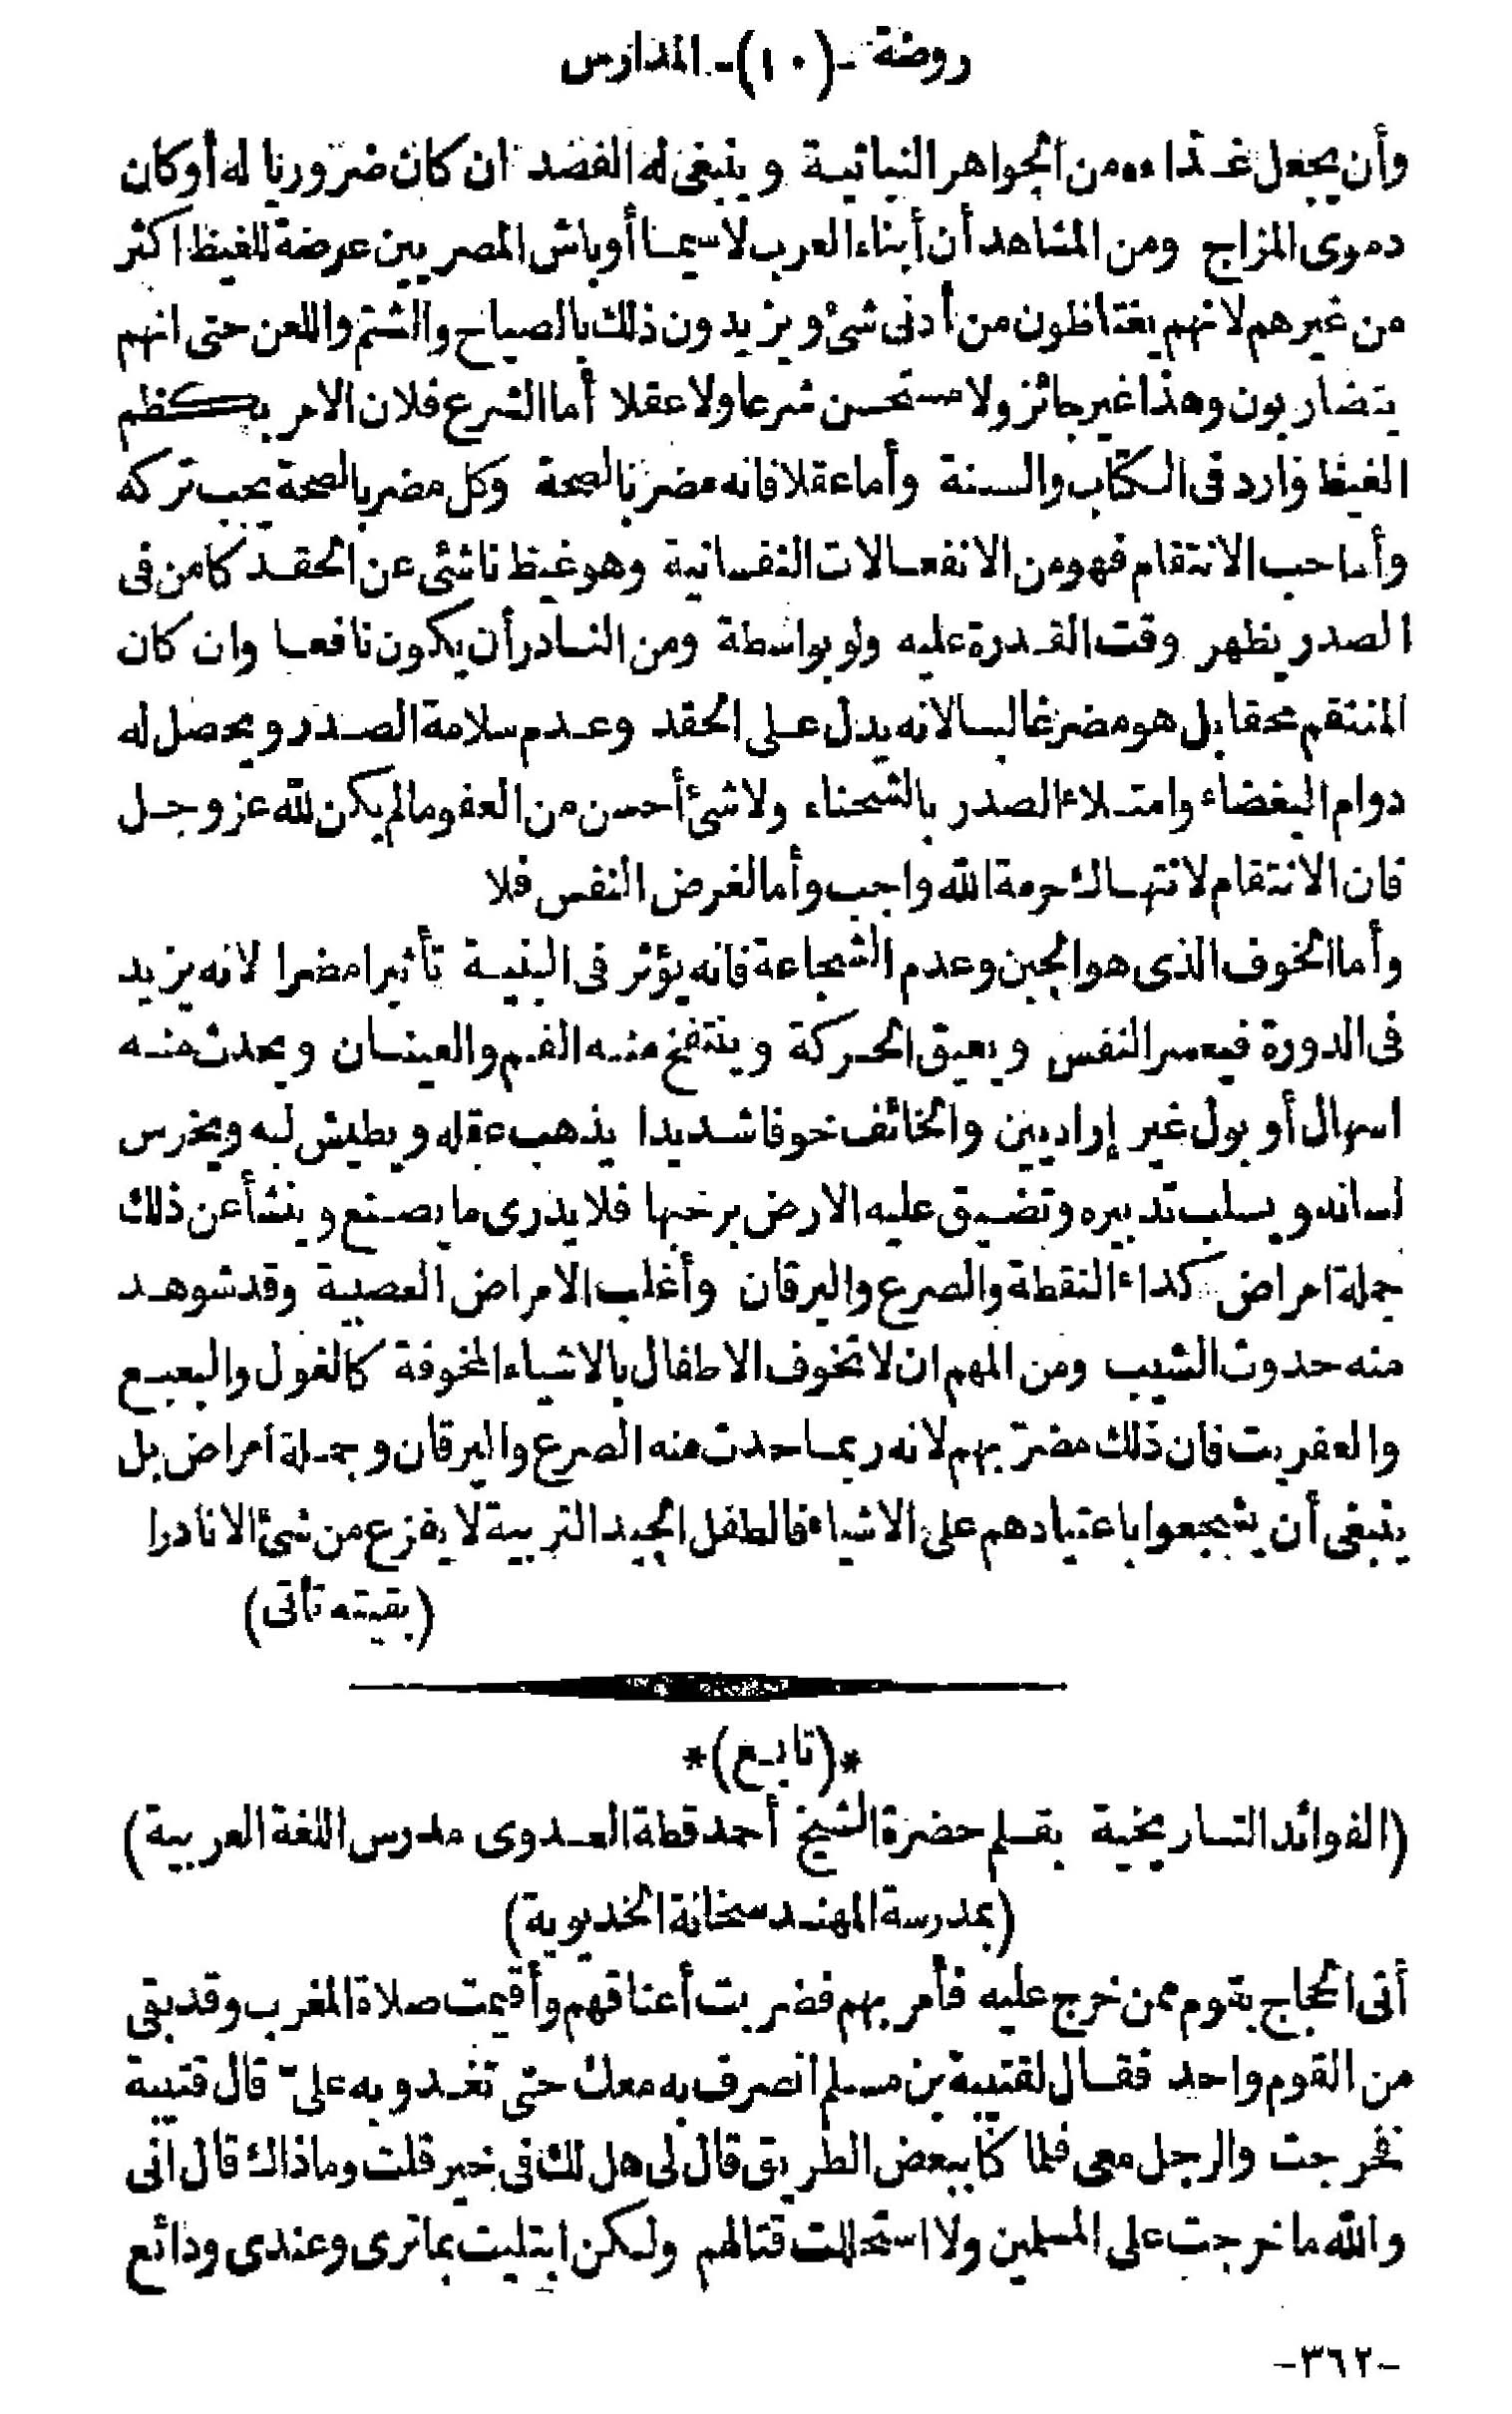 روضة -(١٠)- المدارس
وأن يجعل غذاءه من الجواهر النباتية وينبغى له الفصد ان كان ضروريا له أو كان
دموى المزاج ومن المشاهد أن أبناء العرب لا سيما أوباش المصريين عرضة للغيظ اكثر
من غيرهم لانهم يغتاظون من أدنى شئ ويزيدون ذلك بالصياح والشتم واللعن حتى انهم
يتضاربون وهذا غير جائز ولا مستحسن شرعا ولا عقلا أما الشرع فلان الامر بكظم
الغيظ وارد فى الكتاب والسنة وأما عقلا فانه مضر بالصحة وكل مضر بالصحة يجب تركه
وأما حب الانتقام فهو من الانفعالات النفسانية وهو غيظ ناشئ عن الحقد كامن فى
الصدر يظهر وقت القدرة عليه ولو بواسطة ومن النادر أن يكون نافعا وان كان
المنتقم محقا بل هو مضر غالبا لانه يدل على الحقد وعدم سلامة الصدر ويحصل له
دوام البغضاء وامتلاء الصدر بالشحناء ولا شئ أحسن من العفو ما لم يكن لله عز وجل
فان الانتقام لانتهاك حرمة الله واجب وأما لغرض النفس فلا
وأما الخوف الذى هو الجبن وعدم الشجاعة فانه يؤثر فى البنية تأثيرا مضرا لانه يزيد
فى الدورة فيعسر النفس ويعيق الحركة وينتفخ منه الفم والعينان ويحدث منه
اسهال أو بول غير إراديين والخائف خوفا شديدا يذهب عقله ويطيش لبه ويخرس
لسانه ويسلب تدبيره وتضيق عليه الارض برحبها فلا يدرى ما يصنع وينشأ عن ذلك
جملة امراض كداء النقطة والصرع واليرقان وأغلب الامراض العصبية وقد شوهد
منه حدوث الشيب ومن المهم ان لا تخوف الاطفال بالاشياء المخوفة كالغول والبعبع
والعفريت فان ذلك مضرّ بهم لانه ربما حدث منه الصرع واليرقان وجملة أمراض بل
ينبغى أن يشجعوا باعتيادهم على الاشياء فالطفل الجيد التربية لا يفزع من شئ الا نادرا
(بقيته تأتى)
*(تابع)*
(الفوائد التاريخية بقلم حضرة الشيخ أحمد قطة العدوى مدرس اللغة العربية)
(بمدرسة المهندسخانة الخديوية)
أتى الحجاج بقوم ممن خرج عليه فأمر بهم فضربت أعناقهم وأقيمت صلاة المغرب وقد بقى
من القوم واحد فقال لقتيبة بن مسلم انصرف به معك حتى تغدو به علىّ قال قتيبة
فخرجت والرجل معى فلما كنا ببعض الطريق قال لى هل لك فى خير قلت وما ذاك قال انى
والله ما خرجت على المسلمين ولا استحللت قتالهم ولكن ابتليت بما ترى وعندى ودائع
-٣٦٢-